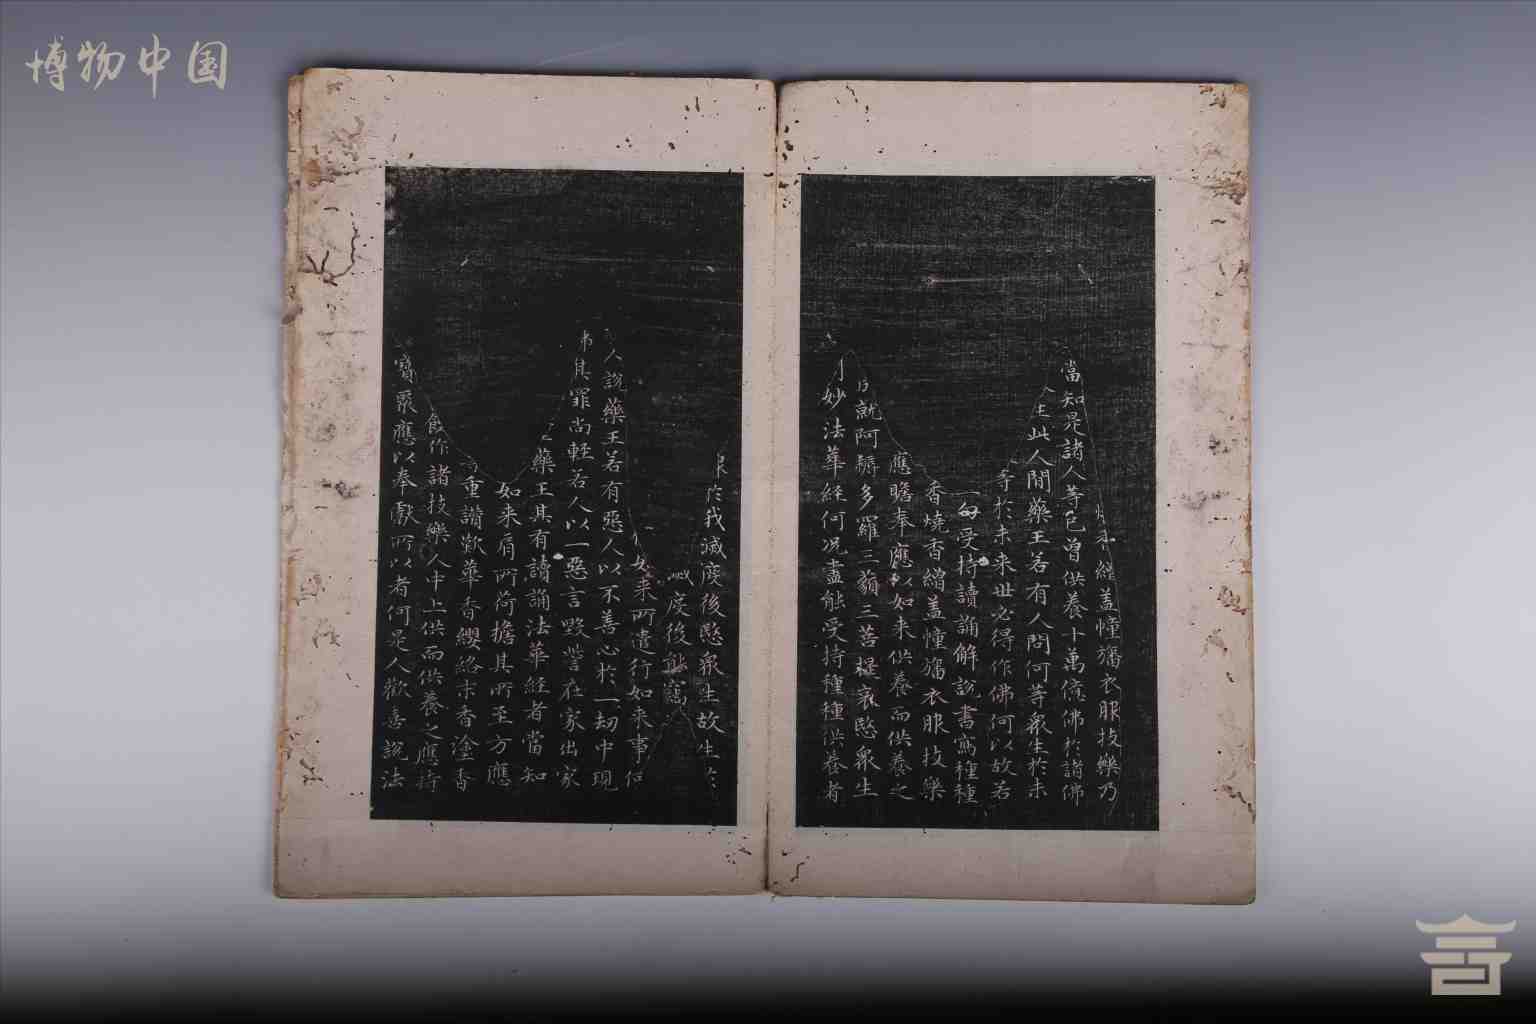 博物中国
繒蓋幢旛衣服技樂乃
當知是諸人等已曾供養十萬億佛於諸佛
生此人間藥王若有人問何等衆生於未
等於未来世必得作佛何以故若
一句受持讀誦解說書寫種種
香燒香繒蓋幢旛衣服技樂
應瞻奉應以如来供養而供養之
就阿耨多羅三藐三菩提哀愍衆生
妙法華經何况盡能受持種種供養者
於我滅度後愍衆生故生於
度後能竊
如来所遣行如来事何
人說藥王若有惡人以不善心於一劫中現
其罪尚輕若人以一惡言毀訾在家出家
藥王其有讀誦法華經者當知
如来肩所荷擔其所至方應
重讚歎華香纓絡末香塗香
作諸技樂人中上供而供養之應持
寶聚應以奉獻所以者何是人歡喜說法